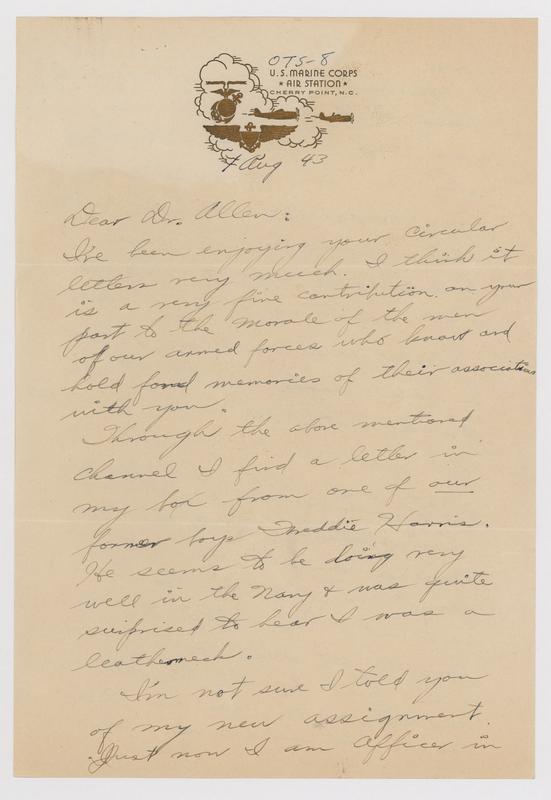 OTS-8
U.S. MARINE CORPS
★ AIR STATION ★
CHERRY POINT, N.C.
7 Aug 43
Dear Dr. Allen:
I've been enjoying your circular
letters very much. I think it
is a very fine contribution on your
part to the morale of the men
of our armed forces who know and
hold fond memories of their association
with you.
Through the above mentioned
channel I find a letter in
my box from one of our
former boys Freddie Harris.
He seems to be doing very
well in the Navy & was quite
surprised to hear I was a
leatherneck.
I'm not sure I told you
of my new assignment.
Just now I am Officer in